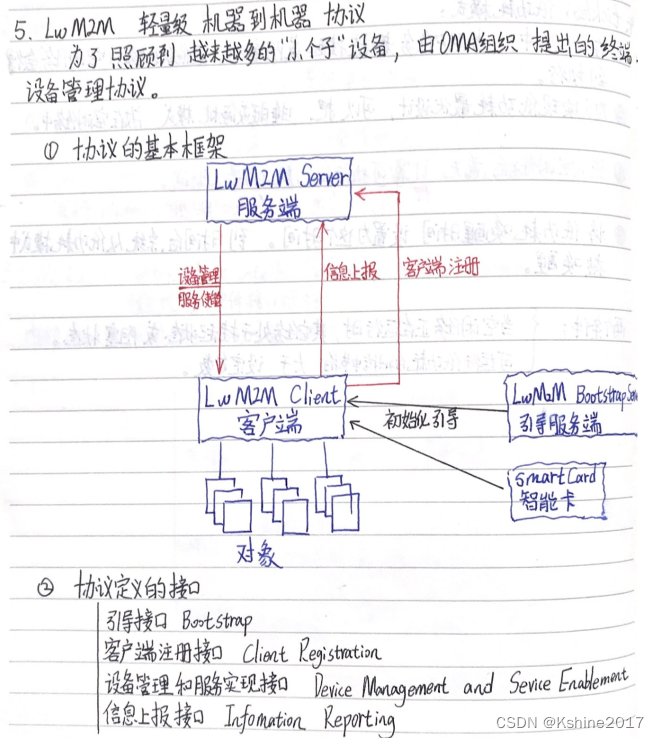 5. LwM2M 轻量级 机器到机器 协议
为了照顾到 越来越多的“小个子”设备, 由OMA组织 提出的终端
设备管理协议。
① 协议的基本框架
LwM2M Server
服务端
设备管理
服务使能
信息上报
客户端注册
LwM2M Client
客户端
初始化引导
LwM2M Bootstrap Ser
引导服务端
SmartCard
智能卡
对象
② 协议定义的接口
引导接口 Bootstrap
客户端注册接口 Client Registration
设备管理和服务实现接口 Device Management and Sevice Enablement
信息上报接口 Infomation Reporting
CSDN @Kshine2017